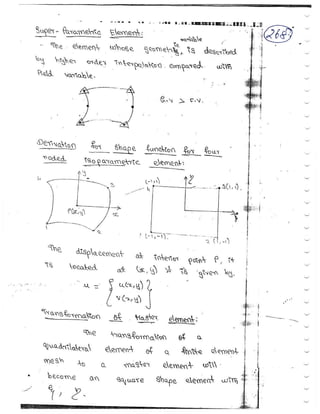 Super-Parametric Element:
(268)
variable
The element whose geometric is described
by higher order interpolation compared with
Field variable.
G.V > F.V.
Derivation for shape function for four
noded isoparametric element:
y
4
3
P(x,y)
x
1
2
(-1,1)
4
3(1,1)
1(-1,-1)
2(1,-1)
The displacement at interior point P, it
is located at (x,y) is given by,
u = { u(x,y)
v(x,y) }
Transformation of Master element:
The transformation of a
quadrilateral element of a finite element
mesh to a master element will
become an square shape element with